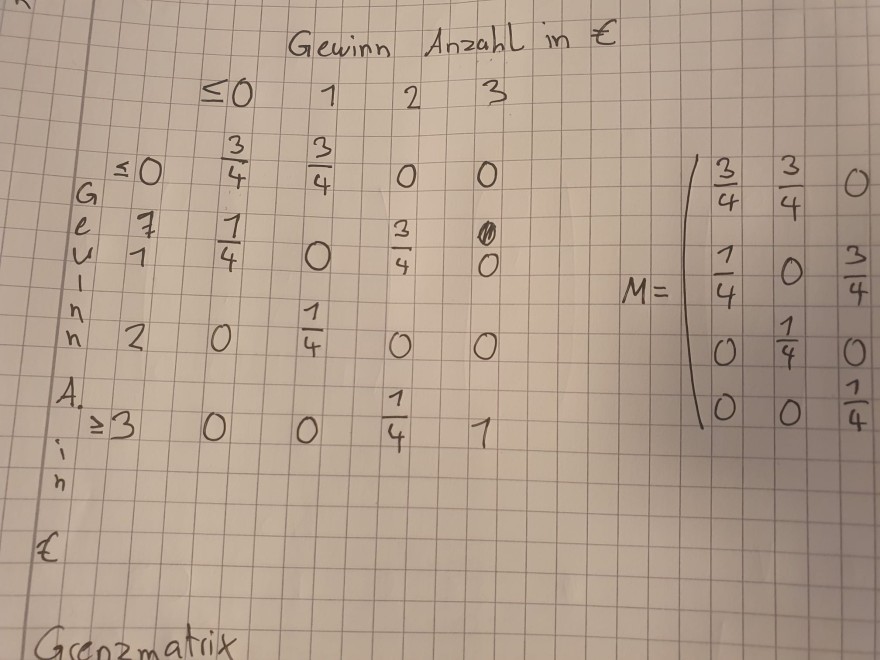 Gewinn Anzahl in €
≤0 1 2 3
≤0 3/4 3/4 0 0
1 1/4 0 3/4 0
2 0 1/4 0 0
≥3 0 0 1/4 1
Gewinn A. in €
M=
3/4 3/4 0
1/4 0 3/4
0 1/4 0
0 0 1/4
Grenzmatrix